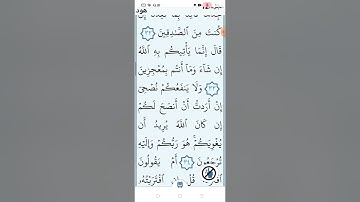 هود
كُنتَ مِنَ ٱلصَّٰدِقِينَ ٣٢
قَالَ إِنَّمَا يَأْتِيكُم بِهِ ٱللَّهُ
إِن شَآءَ وَمَآ أَنتُم بِمُعْجِزِينَ
٣٣ وَلَا يَنفَعُكُمْ نُصْحِىٓ
إِنْ أَرَدتُّ أَنْ أَنصَحَ لَكُمْ
إِن كَانَ ٱللَّهُ يُرِيدُ أَن
يُغْوِيَكُمْ ۚ هُوَ رَبُّكُمْ وَإِلَيْهِ
تُرْجَعُونَ ٣٤ أَمْ يَقُولُونَ
ٱفْتَرَىٰهُ ۖ قُلْ إِنِ ٱفْتَرَيْتُهُۥ